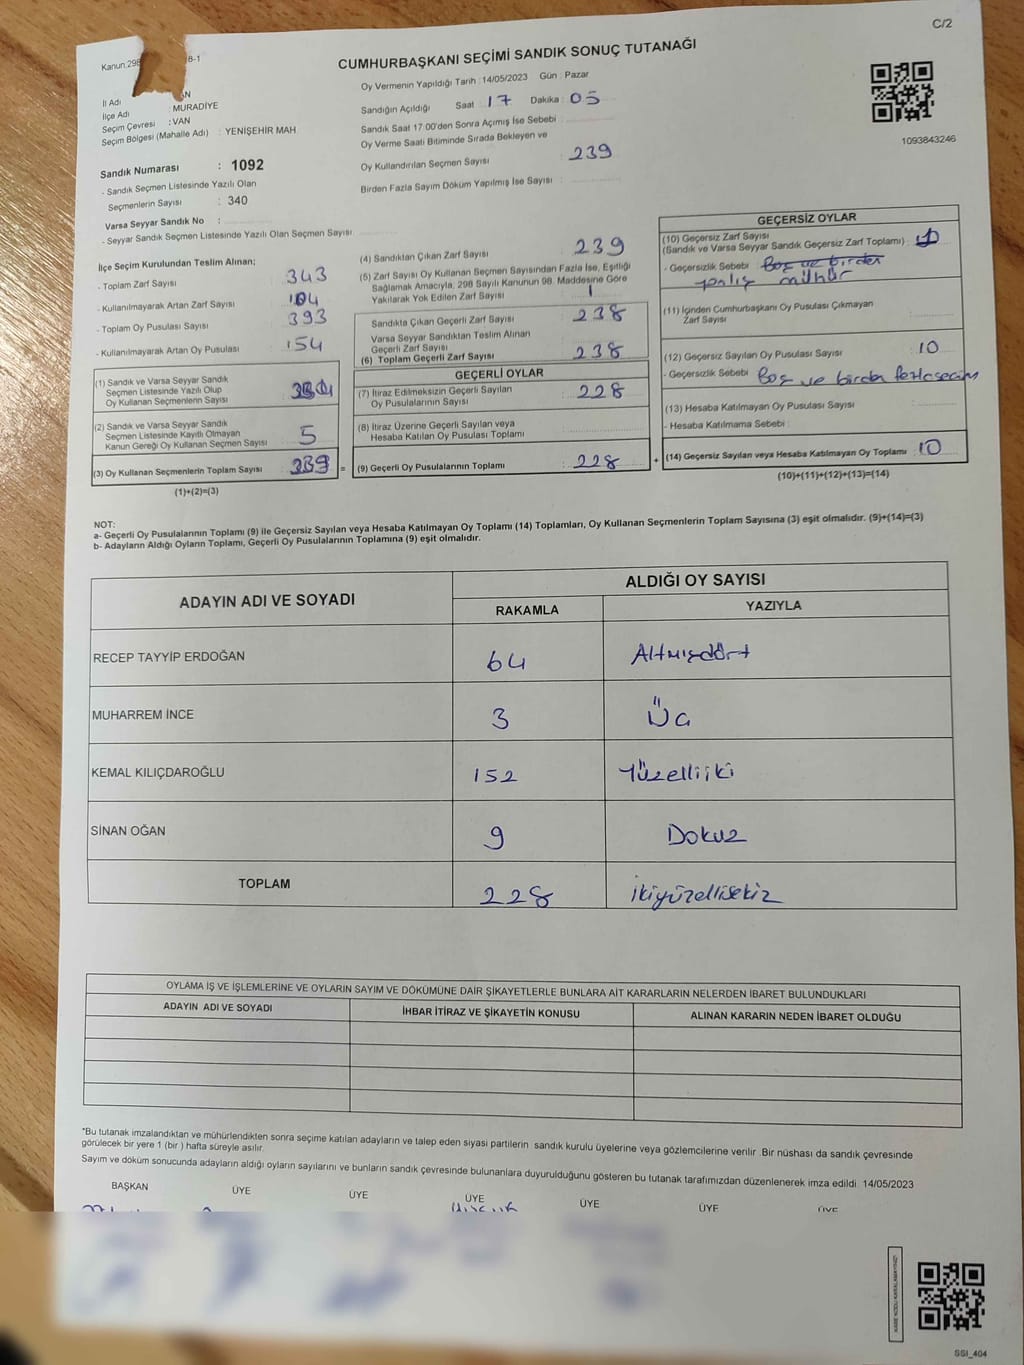 C/2
Kanun:298
8-1
CUMHURBAŞKANI SEÇİMİ SANDIK SONUÇ TUTANAĞI
İl Adı
AN
İlçe Adı : MURADİYE
Seçim Çevresi : VAN
Seçim Bölgesi (Mahalle Adı) : YENİŞEHİR MAH
Sandık Numarası : 1092
- Sandık Seçmen Listesinde Yazılı Olan
Seçmenlerin Sayısı : 340
Varsa Seyyar Sandık No :
- Seyyar Sandık Seçmen Listesinde Yazılı Olan Seçmen Sayısı
Oy Vermenin Yapıldığı Tarih : 14/05/2023 Gün : Pazar
Sandığın Açıldığı Saat : 17 Dakika : 05
Sandık Saat 17:00'den Sonra Açımış İse Sebebi :
Oy Verme Saati Bitiminde Sırada Bekleyen ve
Oy Kullandırılan Seçmen Sayısı : 239
Birden Fazla Sayım Döküm Yapılmış İse Sayısı :
1093843246
İlçe Seçim Kurulundan Teslim Alınan;
- Toplam Zarf Sayısı : 343
- Kullanılmayarak Artan Zarf Sayısı : 104
- Toplam Oy Pusulası Sayısı : 393
- Kullanılmayarak Artan Oy Pusulası : 154
(1) Sandık ve Varsa Seyyar Sandık
Seçmen Listesinde Yazılı Olup
Oy Kullanan Seçmenlerin Sayısı
(2) Sandık ve Varsa Seyyar Sandık
Seçmen Listesinde Kayıtlı Olmayan
Kanun Gereği Oy Kullanan Seçmen Sayısı : 5
(3) Oy Kullanan Seçmenlerin Toplam Sayısı : 239 =
(1)+(2)=(3)
(4) Sandıktan Çıkan Zarf Sayısı : 239
(5) Zarf Sayısı Oy Kullanan Seçmen Sayısından Fazla İse, Eşitliği
Sağlamak Amacıyla, 298 Sayılı Kanunun 98. Maddesine Göre
Yakılarak Yok Edilen Zarf Sayısı : 1
Sandıkta Çıkan Geçerli Zarf Sayısı : 238
Varsa Seyyar Sandıktan Teslim Alınan
Geçerli Zarf Sayısı
(6) Toplam Geçerli Zarf Sayısı : 238
GEÇERLİ OYLAR
(7) İtiraz Edilmeksizin Geçerli Sayılan
Oy Pusulalarının Sayısı : 228
(8) İtiraz Üzerine Geçerli Sayılan veya
Hesaba Katılan Oy Pusulası Toplamı
(9) Geçerli Oy Pusulalarının Toplamı : 228 +
GEÇERSİZ OYLAR
(10) Geçersiz Zarf Sayısı
(Sandık ve Varsa Seyyar Sandık Geçersiz Zarf Toplamı) :
- Geçersizlik Sebebi : Boş ve birden
yanlış mühür
(11) İçinden Cumhurbaşkanı Oy Pusulası Çıkmayan
Zarf Sayısı
(12) Geçersiz Sayılan Oy Pusulası Sayısı : 10
- Geçersizlik Sebebi : Boş ve birden fazla seçim
(13) Hesaba Katılmayan Oy Pusulası Sayısı :
- Hesaba Katılmama Sebebi :
(14) Geçersiz Sayılan veya Hesaba Katılmayan Oy Toplamı : 10
(10)+(11)+(12)+(13)=(14)
NOT:
a- Geçerli Oy Pusulalarının Toplamı (9) ile Geçersiz Sayılan veya Hesaba Katılmayan Oy Toplamı (14) Toplamları, Oy Kullanan Seçmenlerin Toplam Sayısına (3) eşit olmalıdır. (9)+(14)=(3)
b- Adayların Aldığı Oyların Toplamı, Geçerli Oy Pusulalarının Toplamına (9) eşit olmalıdır.
ADAYIN ADI VE SOYADI
ALDIĞI OY SAYISI
RAKAMLA YAZIYLA
RECEP TAYYİP ERDOĞAN 64 Altmışdört
MUHARREM İNCE 3 Üç
KEMAL KILIÇDAROĞLU 152 Yüzelliiki
SİNAN OĞAN 9 Dokuz
TOPLAM 228 ikiyüzellisekiz
OYLAMA İŞ VE İŞLEMLERİNE VE OYLARIN SAYIM VE DÖKÜMÜNE DAİR ŞİKAYETLERLE BUNLARA AİT KARARLARIN NELERDEN İBARET BULUNDUKLARI
ADAYIN ADI VE SOYADI İHBAR İTİRAZ VE ŞİKAYETİN KONUSU ALINAN KARARIN NEDEN İBARET OLDUĞU
*Bu tutanak imzalandıktan ve mühürlendikten sonra seçime katılan adayların ve talep eden siyasi partilerin sandık kurulu üyelerine veya gözlemcilerine verilir .Bir nüshası da sandık çevresinde
görülecek bir yere 1 (bir ) hafta süreyle asılır.
Sayım ve döküm sonucunda adayların aldığı oyların sayılarını ve bunların sandık çevresinde bulunanlara duyurulduğunu gösteren bu tutanak tarafımızdan düzenlenerek imza edildi. 14/05/2023
BAŞKAN ÜYE ÜYE ÜYE ÜYE ÜYE ÜYE
SSI_404